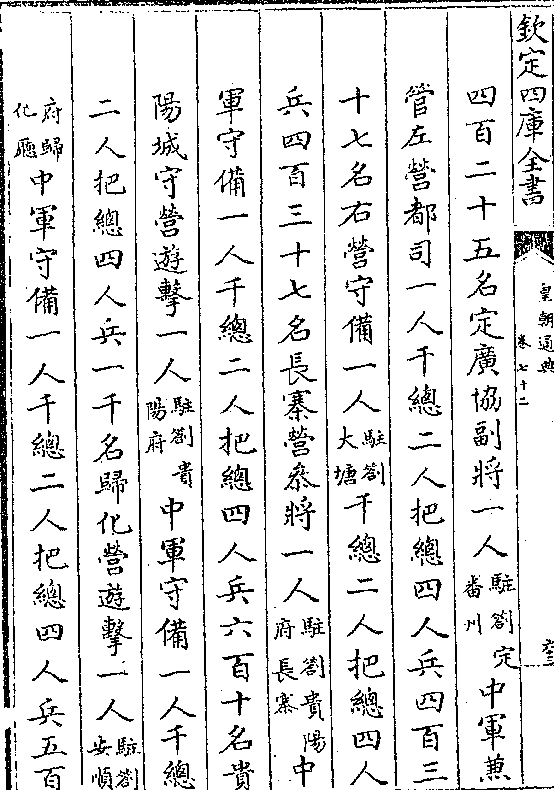 欽定四庫全書
皇朝通典
卷七十二
四百二十五名定廣協副將一人駐劄定番州中軍兼
管左營都司一人千總二人把總四人兵四百三
十七名右營守備一人駐劄大塘千總二人把總四人
兵四百三十七名長寨營叅將一人駐劄貴陽府長寨中
軍守備一人千總二人把總四人兵六百十名貴
陽城守營遊擊一人駐劄貴陽府中軍守備一人千總
二人把總四人兵一千名歸化營遊擊一人駐劄安順
府歸化廳中軍守備一人千總二人把總四人兵五百